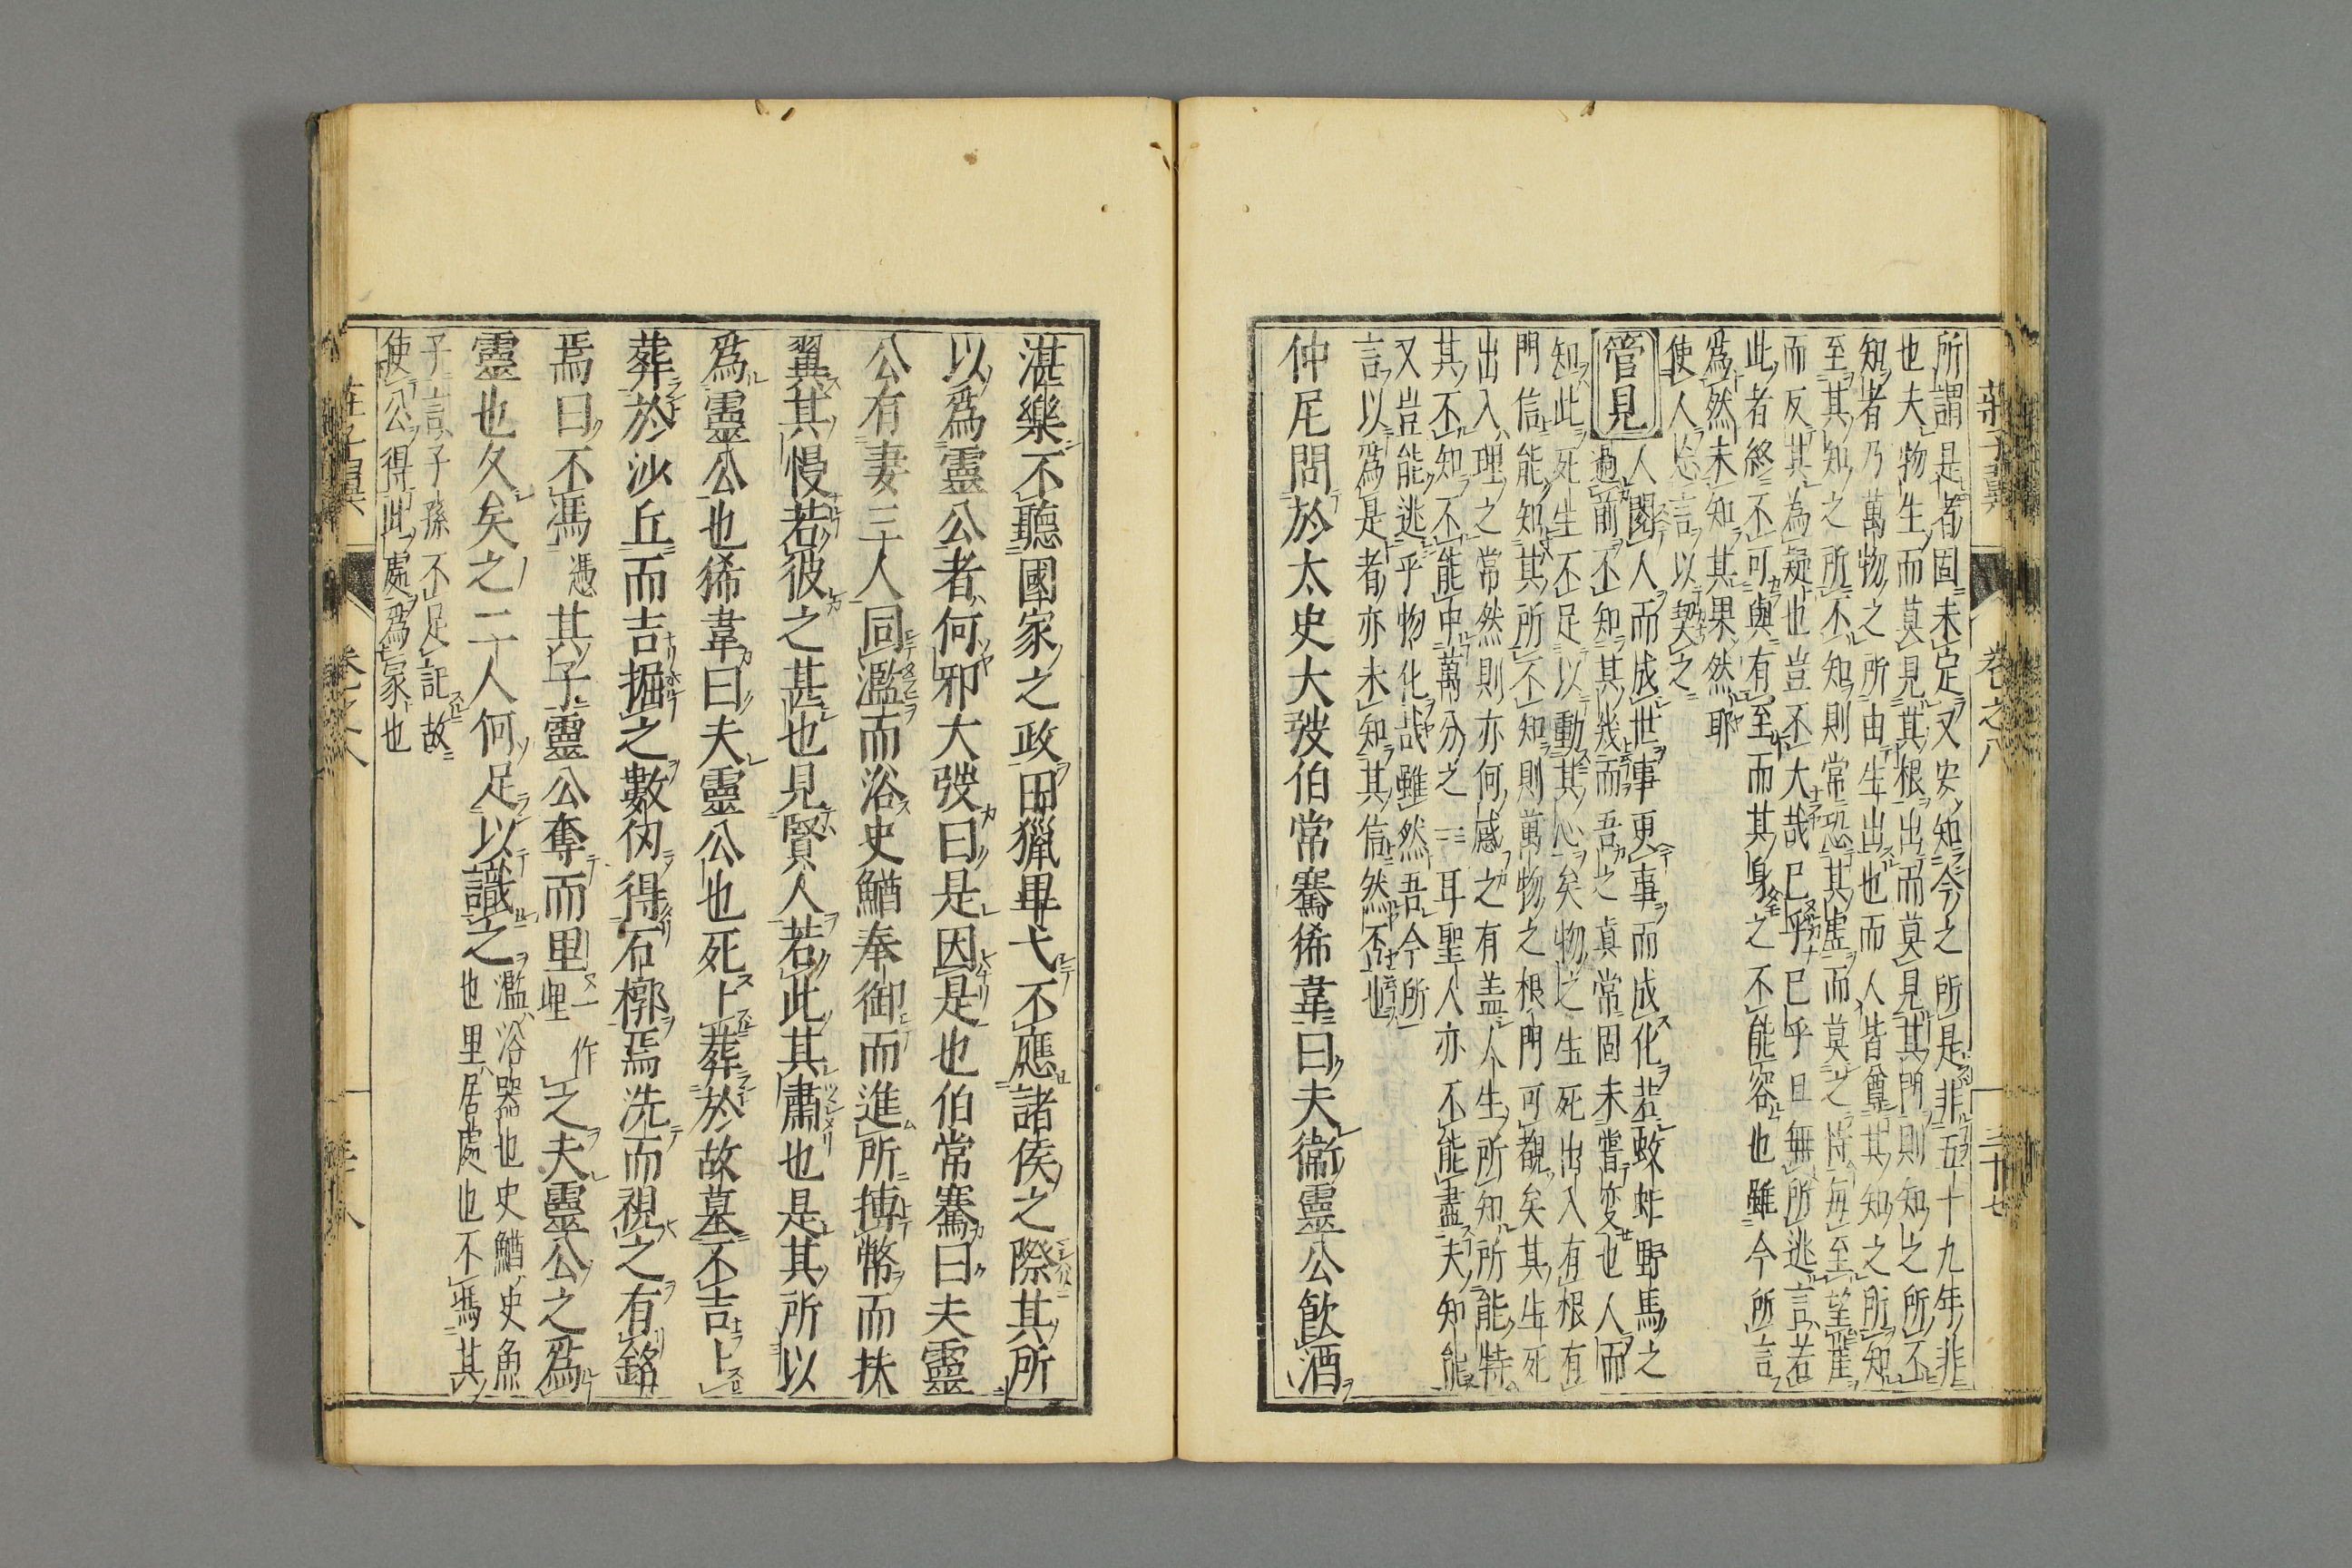 莊子翼
卷之八
三十七
所謂是者固未定又安知今之所是非五十九年非
也夫物生而莫見其根出而莫見其門則知之所不
知者乃萬物之所由生出也而人皆尊其知之所知
至其知之所不知則常恐其虛而莫之恃每至望崖
而反其為疑也豈不大哉已乎已乎且無所逃言若
此者終不可與有至而其身之不能容也雖今所言
為然未知其果然耶
使人忘言以契之
管見
人閱人而成世事更事而成化若蚊蚋野馬之
過前不知其幾而吾之真常固未嘗変也人而
知此死生不足以動其心矣物之生死出入有根有
門信能知其所不知則萬物之根門可覩矣其生死
出入理之常然則亦何慼之有盖人生所知所能特
其不知不能中萬分之一耳聖人亦不能盡夫知能
又豈能逃乎物化哉雖然吾今所
言以為是者亦未知其信然否也
仲尼問於太史大弢伯常騫狶韋曰夫衞靈公飲酒
湛樂不聽國家之政田獵畢弋不應諸侯之際其所
以為靈公者何邪大弢曰是因是也伯常騫曰夫靈
公有妻三人同濫而浴史鰌奉御而進所摶幣而扶
翼其慢若彼之甚也見賢人若此其肅也是其所以
為靈公也狶韋曰夫靈公也死卜葬於故墓不吉卜
葬於沙丘而吉掘之數仭得石槨焉洗而視之有銘
焉曰不馮憑其子靈公奪而里一作埋之夫靈公之為
靈也久矣之二人何足以識之濫浴器也史鰌史魚
也里居處也不馮其
子言子孫不足記故
使公得此處為冢也
莊子翼
卷之八
三十八